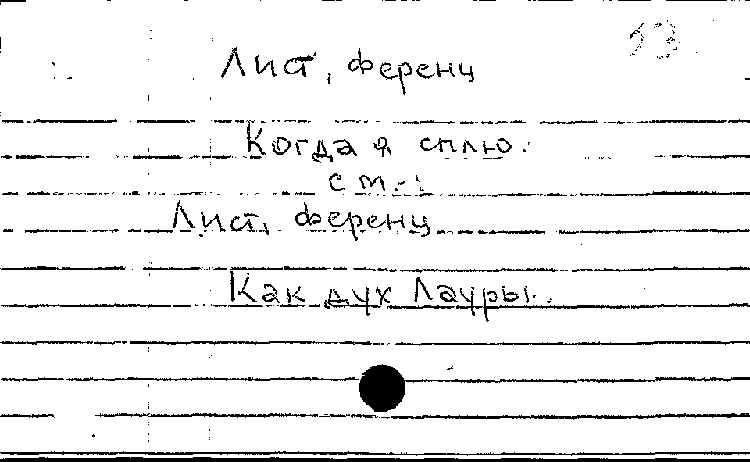 13
Лист, Ференц
Когда я сплю.
см.:
Лист, Ференц
Как дух Лауры.